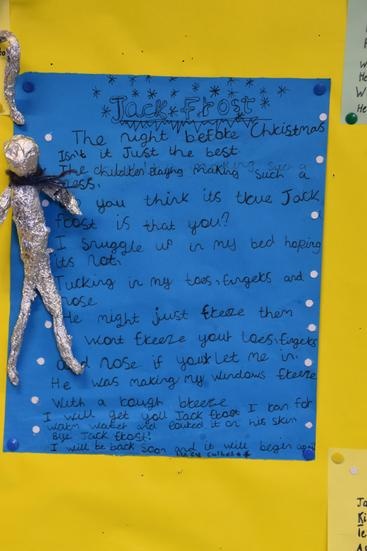 Jack Frost
The night before Christmas
Isn't it Just the best
The children playing making such a
mess,
you think its true Jack
frost is that you?
I snuggle up in my bed hoping
its not.
Tucking in my toes, fingers and
nose
He might just freeze them
I wont freeze your toes, fingers
and nose if you let me in.
He was making my windows freeze
With a rough breeze
I will get you Jack frost I ran for
warm water and poured it on his skin
Bye Jack frost!
I will be back soon and it will begin again